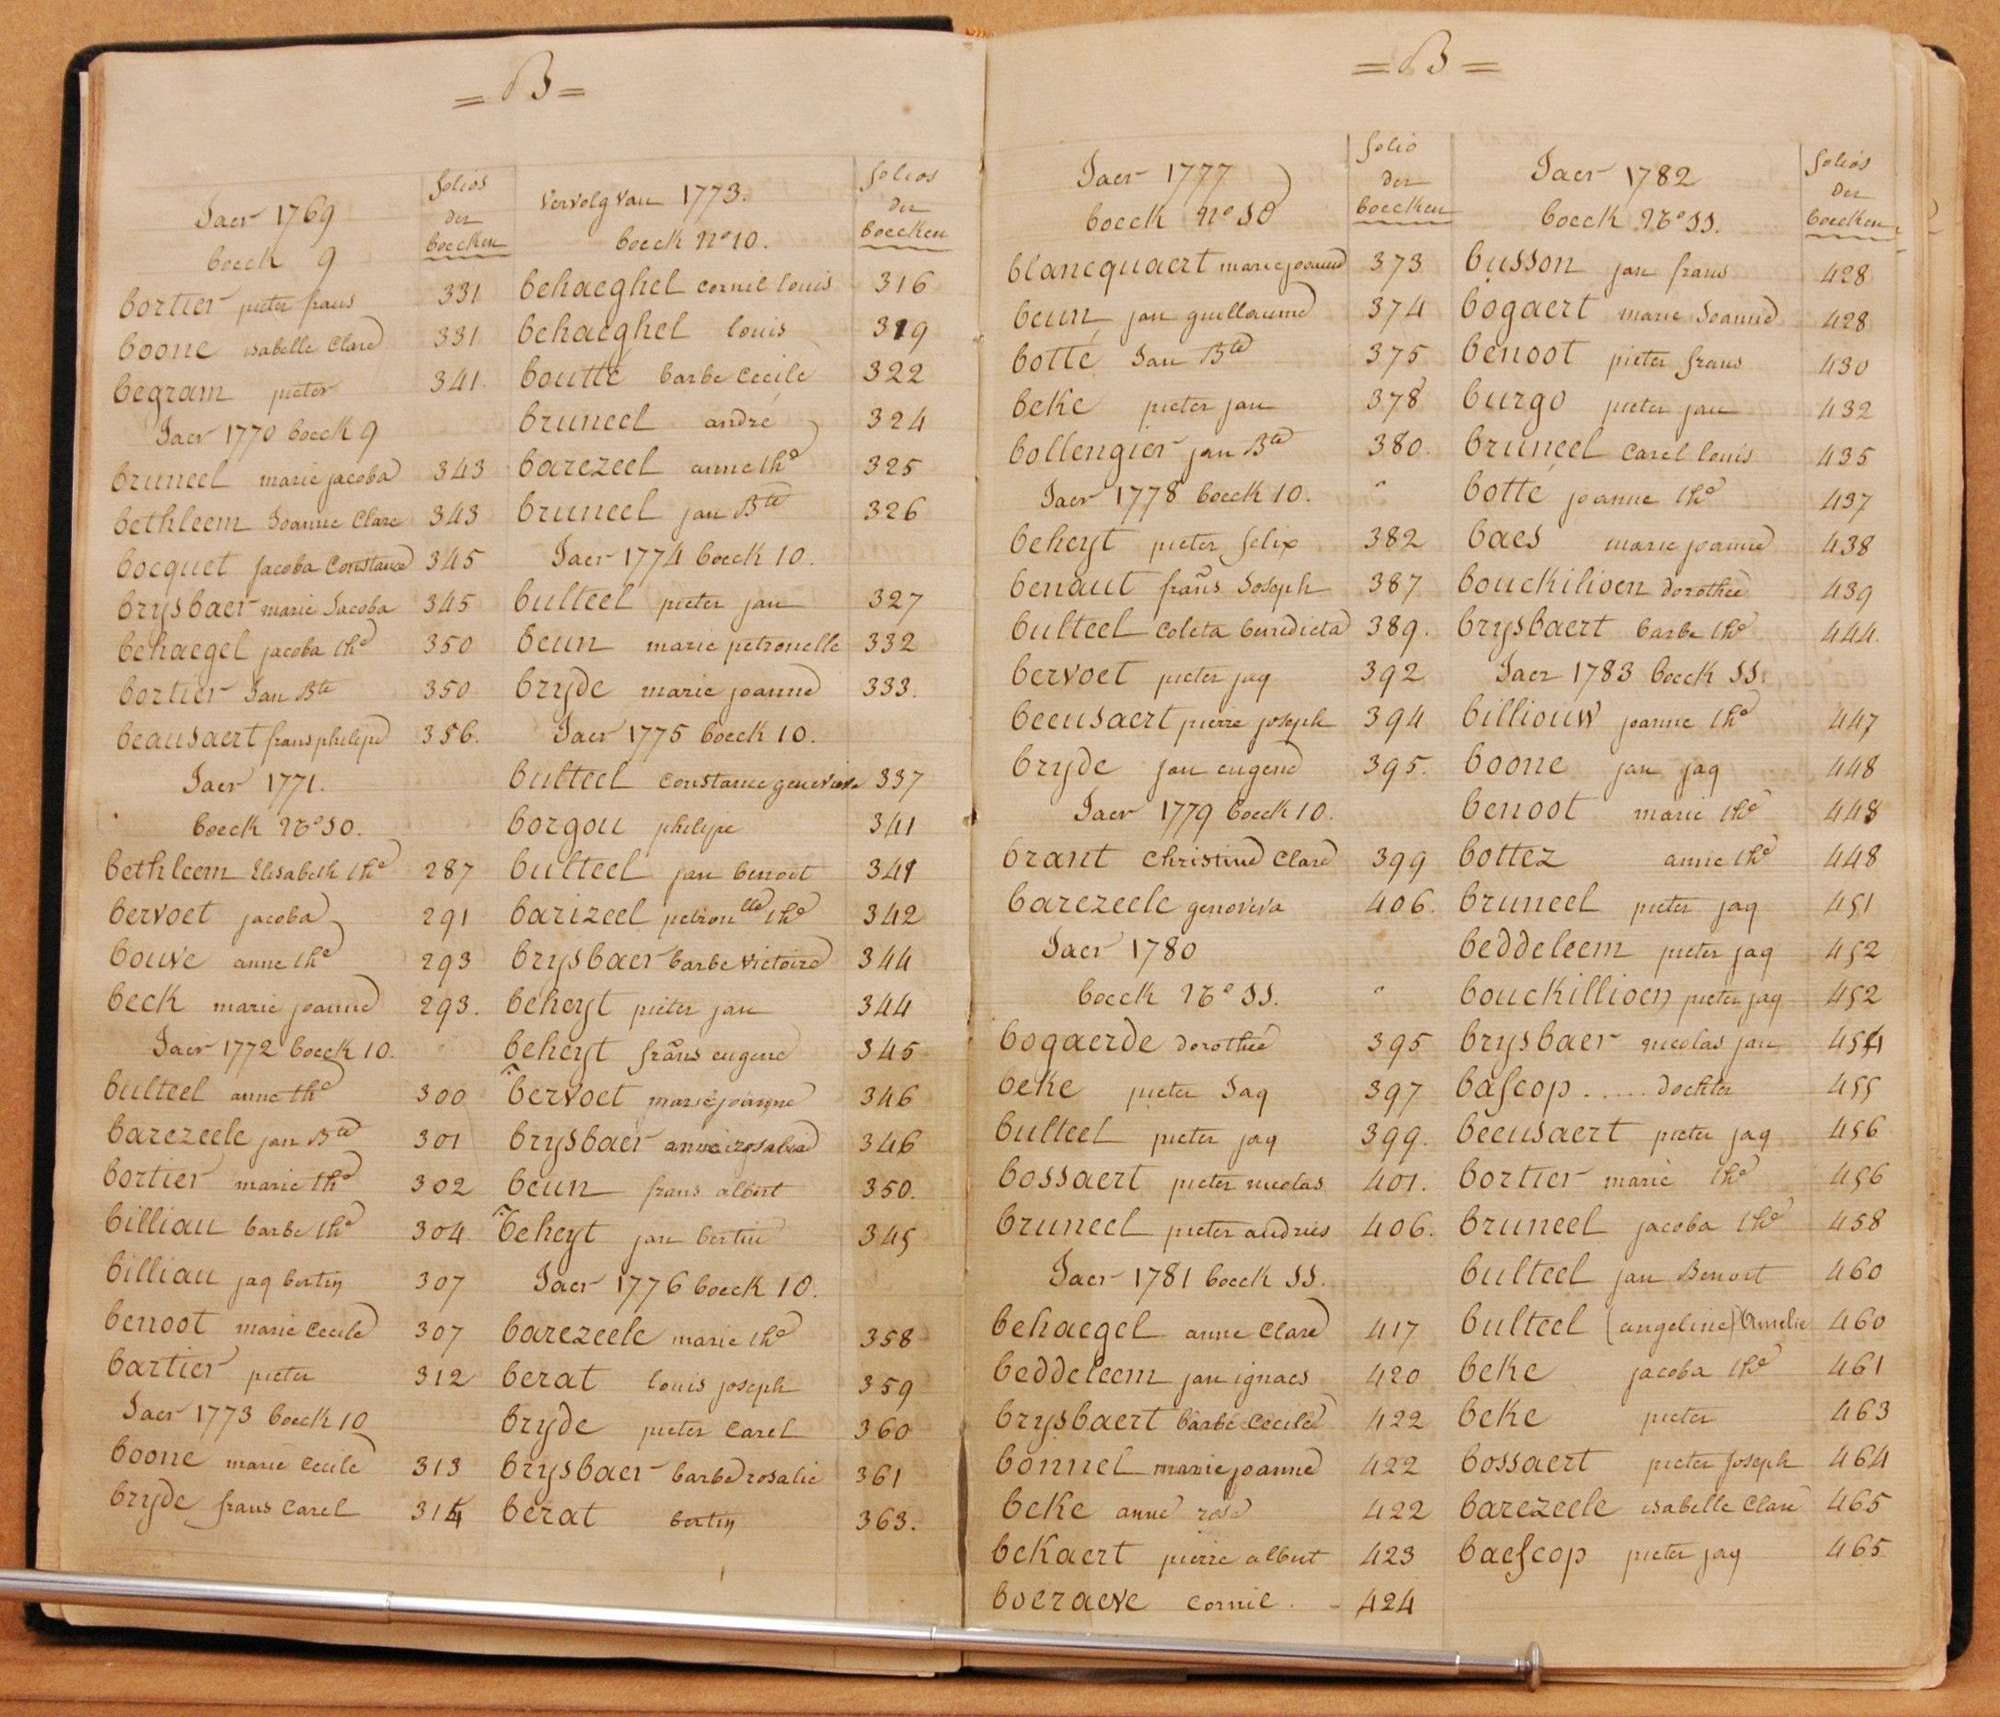 = B =
Jaer 1769
boeck 9
folios
der
boecken
bortier pieter frans 331
boone isabelle Clare 331
begram pieter 341
Jaer 1770 boeck 9
bruneel marie jacoba 343
bethleem Joanne Clare 343
bocquet jacoba Constance 345
brysbaer marie Jacoba 345
behaegel jacoba the 350
bortier Jan Bte 350
beausaert frans philipe 356.
Jaer 1771.
boeck No 10.
bethleem Elisabeth the 287
bervoet jacoba 291
bouve anne the 293
beck marie joanne 293.
Jaer 1772 boeck 10.
bulteel anne the 300
barezeele jan Bte 301
bortier marie the 302
billiau barbe the 304
billiau jaq bertin 307
benoot marie Cecile 307
bartier pieter 312
Jaer 1773 boeck 10
boone marie Cecile 313
bryde frans Carel 314
vervolg van 1773.
boeck No 10.
folios
der
boecken
behaeghel cornil louis 316
behaeghel louis 319
boutté barbe Cecile 322
bruneel andré 324
barezeel anne the 325
bruneel jan Bte 326
Jaer 1774 boeck 10.
bulteel pieter jan 327
beun marie petronelle 332
bryde marie joanne 333.
Jaer 1775 boeck 10.
bulteel constance genevieve 337
borgou philipe 341
bulteel jan benoit 341
barizeel petronlle the 342
brysbaer barbe victoire 344
beheyt pieter jan 344
beheyt frans eugene 345
bervoet marie joanne 346
brysbaer anne rosalia 346
beun frans albert 350.
beheyt jan bertin 345
Jaer 1776 boeck 10.
barezeele marie the 358
berat louis joseph 359
bryde pieter Carel 360
brysbaer barbe rosalie 361
berat bertin 363.
= B =
Jaer 1777
boeck No 10
folio
der
boecken
blancquaert marie joanne 373
beun jan guillaume 374
botté Jan Bte 375
beke pieter jan 378
bollengier jan Bte 380.
Jaer 1778 boeck 10.
beheyt pieter felix 382
benaut frans Joseph 387
bulteel Coleta benedicta 389.
bervoet pieter jaq 392
beeusaert pierre joseph 394
bryde jan eugene 395.
Jaer 1779 boeck 10.
brant Christine Clare 399
barezeele genoveva 406.
Jaer 1780
boeck No 11.
bogaerde dorothé 395
beke pieter Jaq 397
bulteel pieter jaq 399.
bossaert pieter nicolas 401.
bruneel pieter andries 406.
Jaer 1781 boeck 11.
behaegel anne Clare 417
beddeleem jan ignaes 420
brysbaert barbe Cecile 422
bonnel marie joanne 422
beke anne rose 422
bekaert pierre albert 423
boeraeve cornil. 424
Jaer 1782
boeck No 11.
folios
der
boecken
busson jan frans 428
bogaert marie Joanne 428
benoot pieter frans 430
burgo pieter jan 432
bruneel Carel louis 435
botté joanne the 437
baes marie joanne 438
bouckilioen dorothée 439
brysbaert barbe the 444.
Jaer 1783 boeck 11.
billiouw joanne the 447
boone jan jaq 448
benoot marie the 448
bottez anne the 448
bruneel pieter jaq 451
beddeleem pieter jaq 452
bouckillioen pieter jaq 452
brysbaer nicolas jan 454
bascop ..... dochter 455
beeusaert pieter jaq 456
bortier marie the 456
bruneel jacoba the 458
bulteel jan Benoit 460
bulteel (angeline) Amelie 460
beke jacoba the 461
beke pieter 463
bossaert pieter joseph 464
barezeele isabelle Clare 465
baescop pieter jaq 465